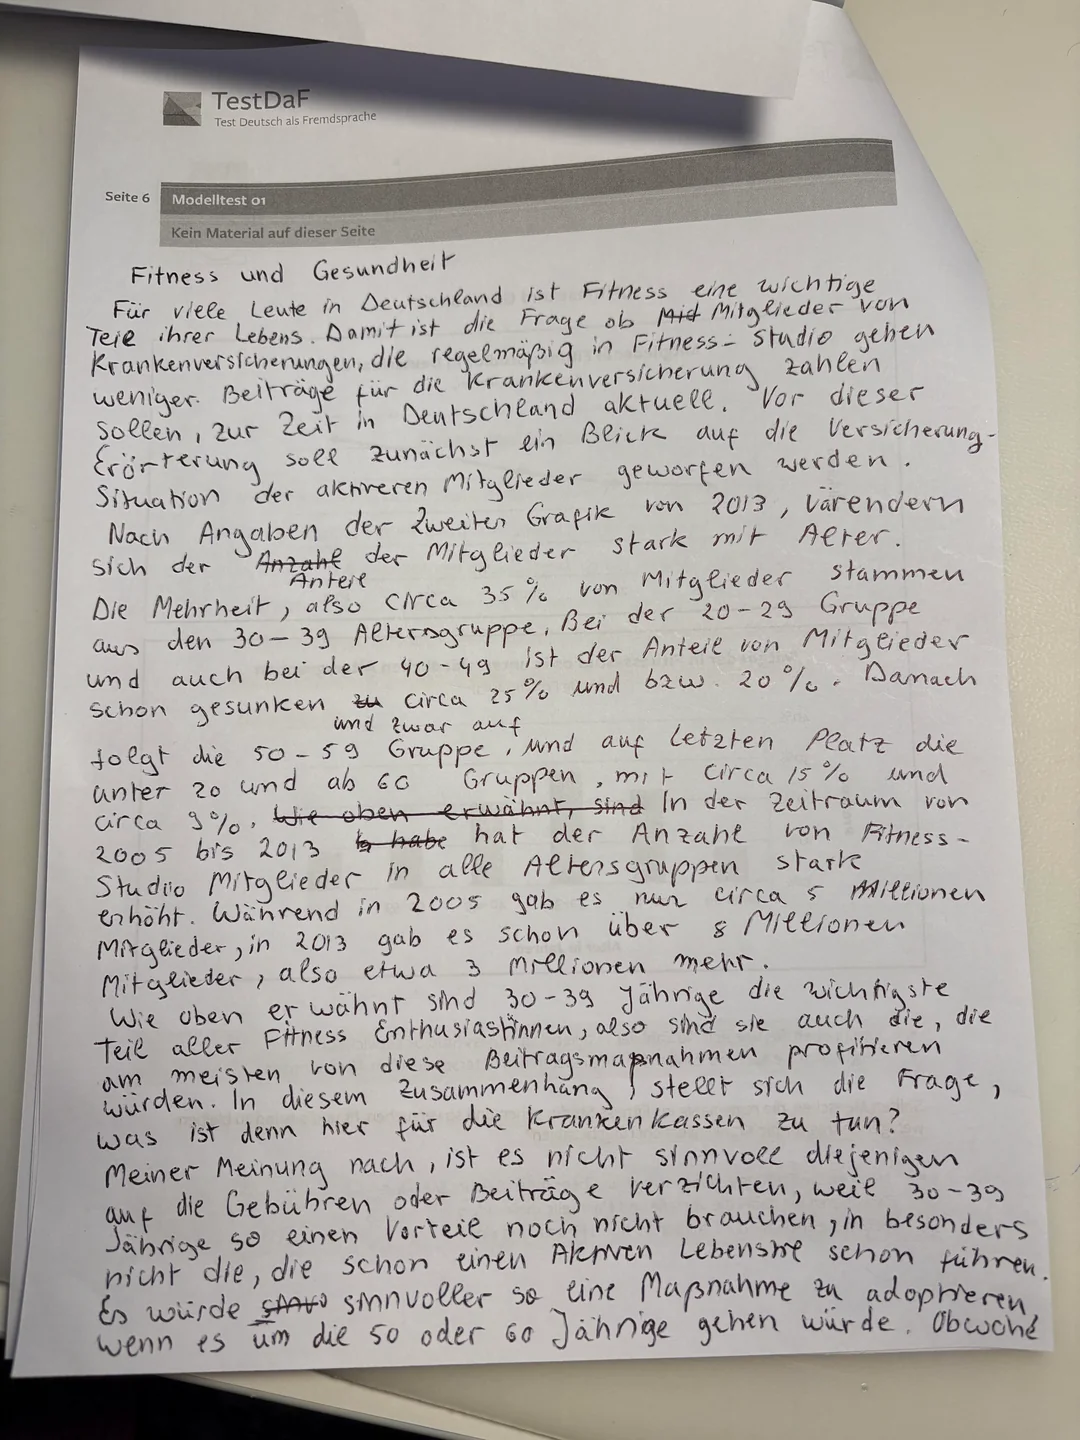 TestDaF
Test Deutsch als Fremdsprache
Seite 6 Modelltest 01
Kein Material auf dieser Seite
Fitness und Gesundheit
Für viele Leute in Deutschland ist Fitness eine wichtige
Teil ihrer Lebens. Damit ist die Frage ob Mit Mitglieder von
Krankenversicherungen, die regelmäßig in Fitness-Studio gehen
weniger Beiträge für die Krankenversicherung zahlen
sollen, zur Zeit in Deutschland aktuell. Vor dieser
Erörterung soll zunächst ein Blick auf die Versicherung-
Situation der aktiveren Mitglieder geworfen werden.
Nach Angaben der Zweiten Grafik von 2013, värendern
sich der Anzahl der Mitglieder stark mit Alter.
Anteil
Die Mehrheit, also circa 35% von Mitglieder stammen
aus den 30-39 Altersgruppe. Bei der 20-29 Gruppe
und auch bei der 40-49 ist der Anteil von Mitglieder
schon gesunken zu circa 25% und bzw. 20%. Danach
und zwar auf
folgt die 50-59 Gruppe, und auf letzten Platz die
unter 20 und ab 60 Gruppen, mit circa 15% und
circa 9%. Wie oben erwähnt, sind In der Zeitraum von
2005 bis 2013 habe hat der Anzahl von Fitness-
Studio Mitglieder in alle Altersgruppen stark
erhöht. Während in 2005 gab es nur circa 5 Millionen
Mitglieder, in 2013 gab es schon über 8 Millionen
Mitglieder, also etwa 3 Millionen mehr.
Wie oben erwähnt sind 30-39 Jährige die wichtigste
Teil aller Fitness Enthusiastinnen, also sind sie auch die, die
am meisten von diese Beitragsmaßnahmen profitieren
würden. In diesem Zusammenhang, stellt sich die Frage,
was ist denn hier für die Krankenkassen zu tun?
Meiner Meinung nach, ist es nicht sinnvoll diejenigen
auf die Gebühren oder Beiträge verzichten, weil 30-39
Jährige so einen Vorteil noch nicht brauchen, in besonders
nicht die, die schon einen Aktiven schon führen.
Es würde sinnvoller so eine Maßnahme zu adoptieren,
wenn es um die 50 oder 60 Jährige gehen würde. Obwohl